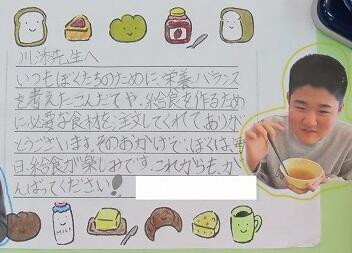 川添先生へ
いつもぼくたちのために、栄養バランス
を考えたこんだてや、給食を作るため
に必要な食材を注文してくれてありが
とうございます。そのおかげで、ぼくは毎
日、給食が楽しみです。これからも、が
んばってください!
MILK